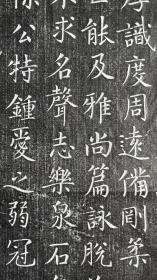 識度周遠備剛柔
能及雅尚篇詠脫
求名聲志樂泉石
公特鍾愛之弱冠